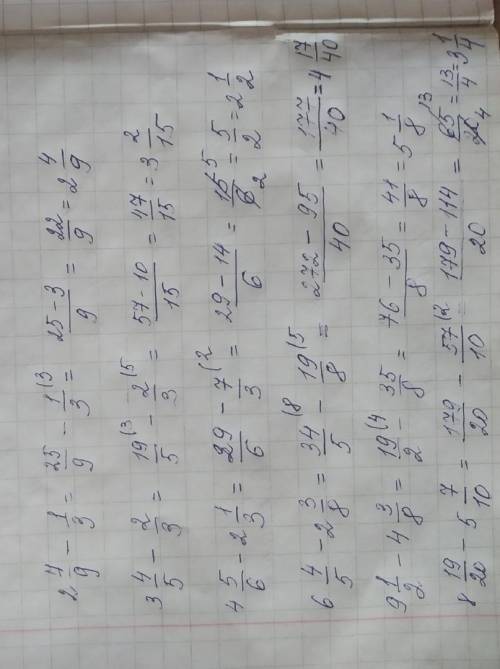 2 4/9 - 1/3 = 25/9 - 1/3 (3 = 25-3/9 = 22/9 = 2 4/9
3 4/5 - 2/3 = 19/5 (3 - 2/3 (5 = 57-10/15 = 47/15 = 3 2/15
4 5/6 - 2 1/3 = 29/6 - 7/3 (2 = 29-14/6 = 15/6 5 2 = 5/2 = 2 1/2
6 4/5 - 2 3/8 = 34/5 (8 - 19/8 (5 = 272-95/40 = 177/40 = 4 17/40
9 1/2 - 4 3/8 = 19/2 (4 - 35/8 = 76-35/8 = 41/8 = 5 1/8
8 19/20 - 5 7/10 = 179/20 - 57/10 (2 = 179-114/20 = 65/20 13 4 = 13/4 = 3 1/4